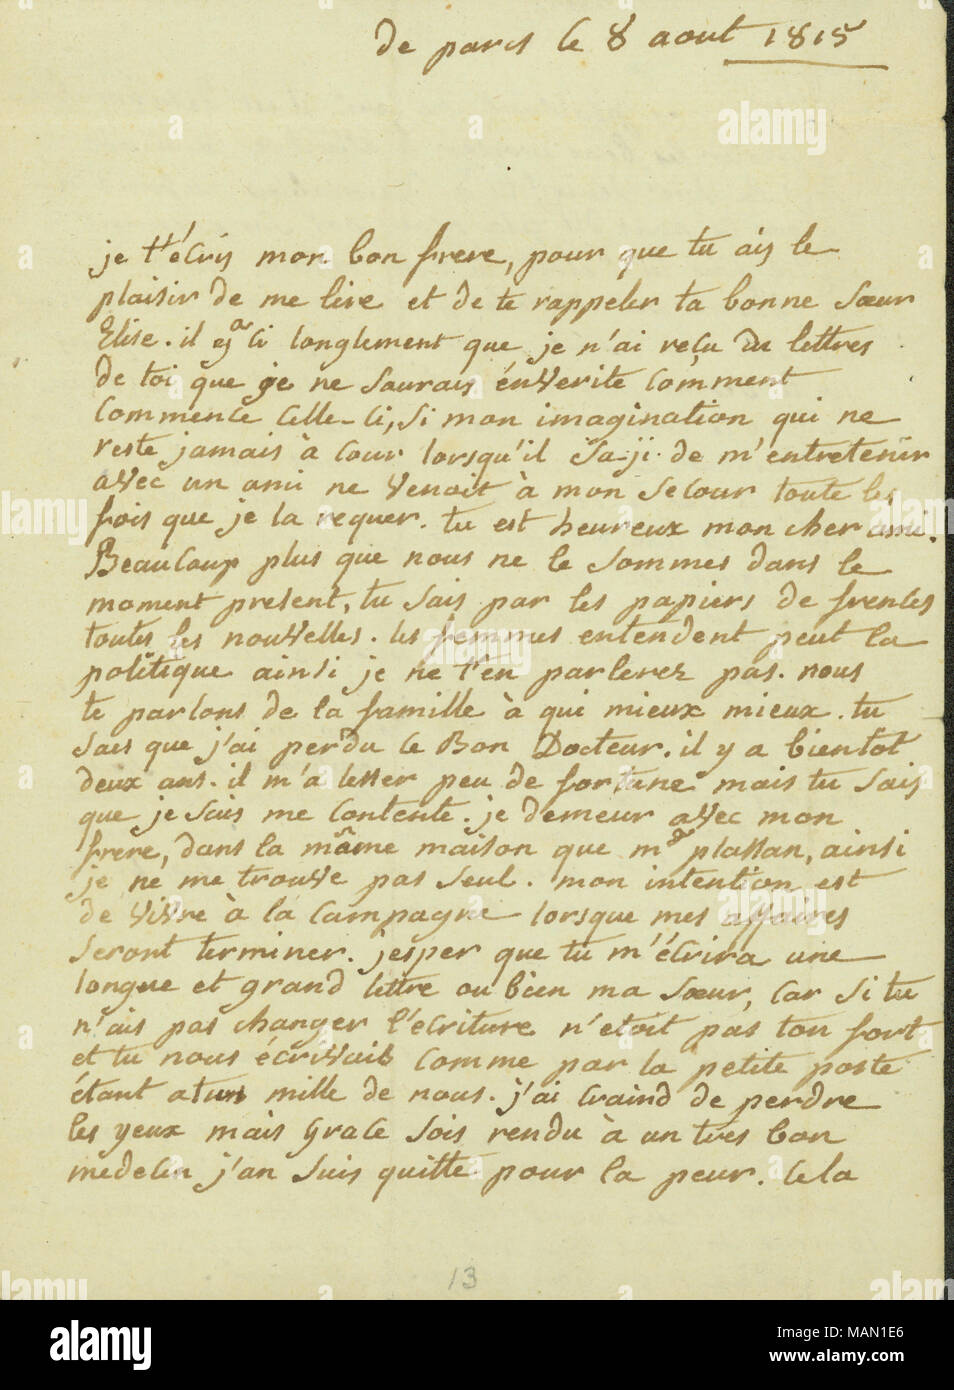 de paris le 8 aout 1815
je t'écris mon bon frere, pour que tu ais le
plaisir de me lire et de te rappeler ta bonne sœur
Elise. il y a si longlement que je n'ai reçu du lettres
de toi que je ne saurais énverite comment
commence celle-ci, si mon imagination qui ne
reste jamais à cour lorsqu'il s'aji de m'entretenir
avec un ami ne venoit à mon secour toute les
fois que je la requer. tu est heureux mon cher ami.
Beaucoup plus que nous ne le sommes dans le
moment present, tu sais par les papiers de frences
toutes les nouvelles. les femmes entendent peut la
politique ainsi je ne t'en parlerez pas. nous
te parlons de la famille à qui mieux mieux. tu
sais que j'ai perdu le Bon Docteur. il y a bientot
deux ans. il m'a lesser peu de fortune mais tu sais
que je sais me contente. je demeur avec mon
frere, dans la même maison que mde plassan, ainsi
je ne me trouve pas seul. mon intention est
de vivre à la campagne lorsque mes affaires
seront terminer. jesper que tu m'écrira une
longue et grand lettre ou bien ma sœur, car si tu
n'ais pas changer l'ecriture n'etoit pas ton fort
et tu nous écrivais comme par la petite poste
étant a un mille de nous. j'ai craind de perdre
les yeux mais grace sois rendu à un tres bon
medecin j'an suis quitte pour la peur. cela
13
alamy
a
Image ID: MAN1E6
www.alamy.com